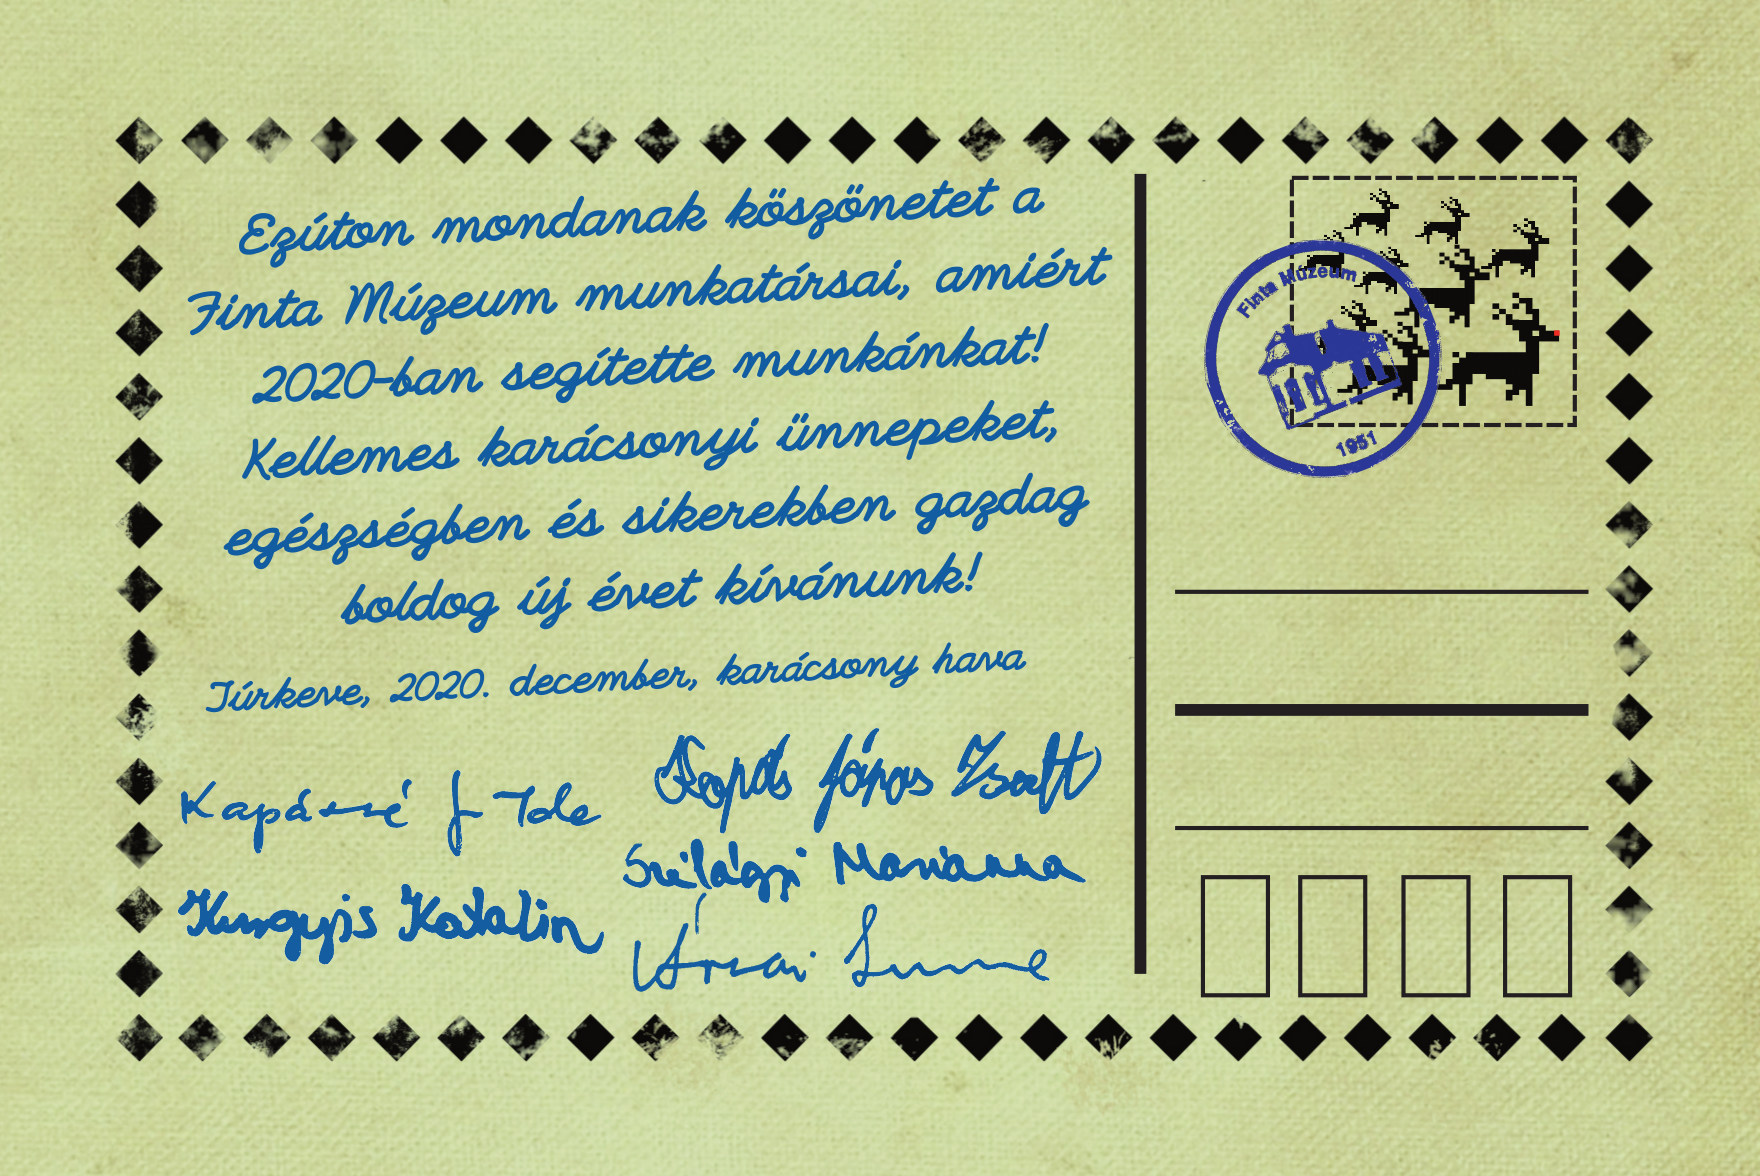 Ezúton mondanak köszönetet a
Finta Múzeum munkatársai, amiért
2020-ban segítette munkánkat!
Kellemes karácsonyi ünnepeket,
egészségben és sikerekben gazdag
boldog új évet kívánunk!
Túrkeve, 2020. december, karácsony hava
János Zsolt
Szilágyi Marianna
Katalin
Finta Múzeum
1951